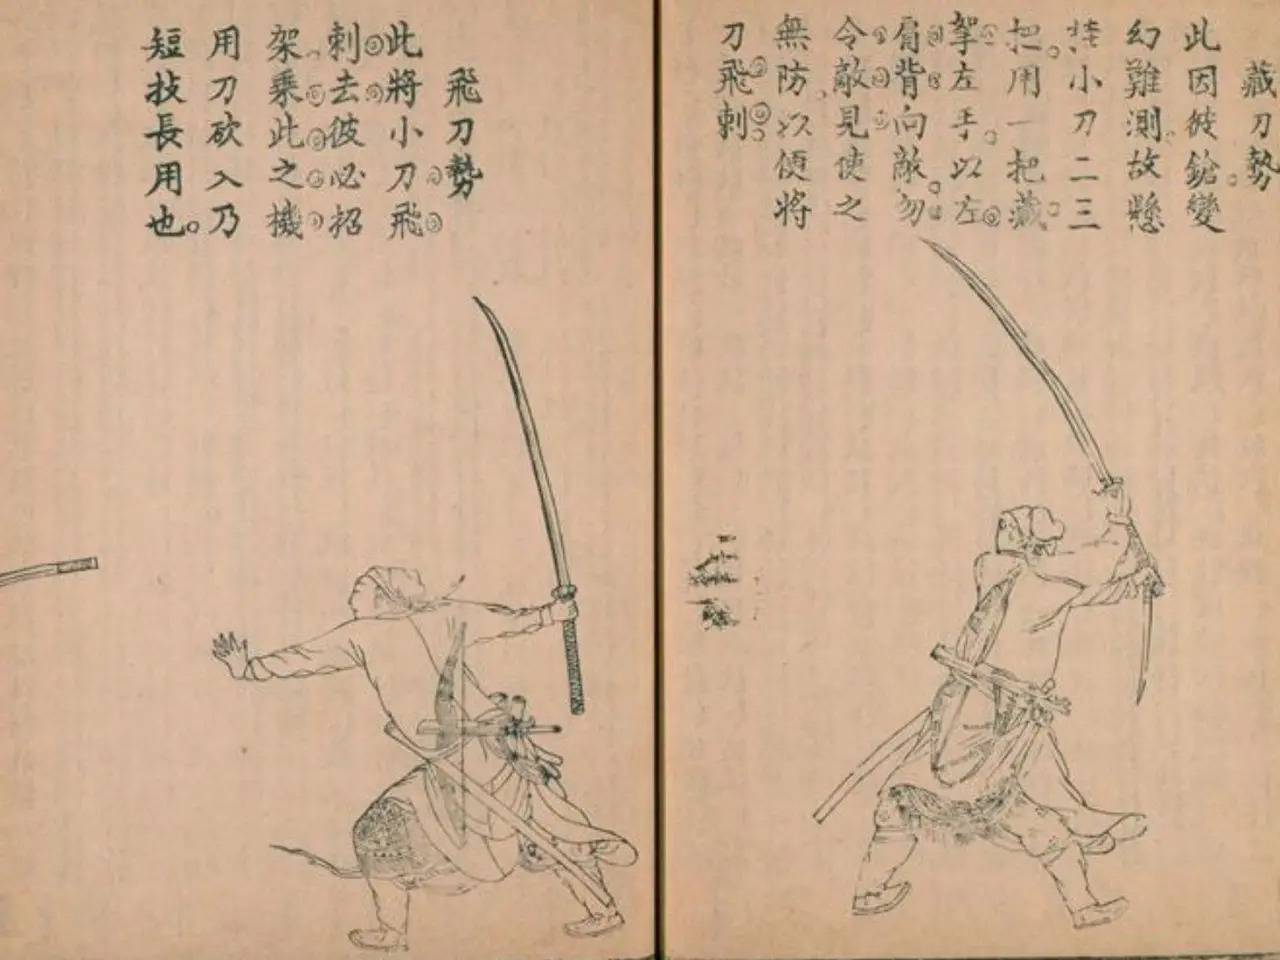 藏刀勢
此因彼鎗變
幻難測故懸
挂小刀二三
把用一把藏
拏左手以左
肩背向敵勿
令敵見使之
無防以便將
刀飛刺
飛刀勢
此將小刀飛
刺去彼必招
架乘此之機
用刀砍入乃
短技長用也